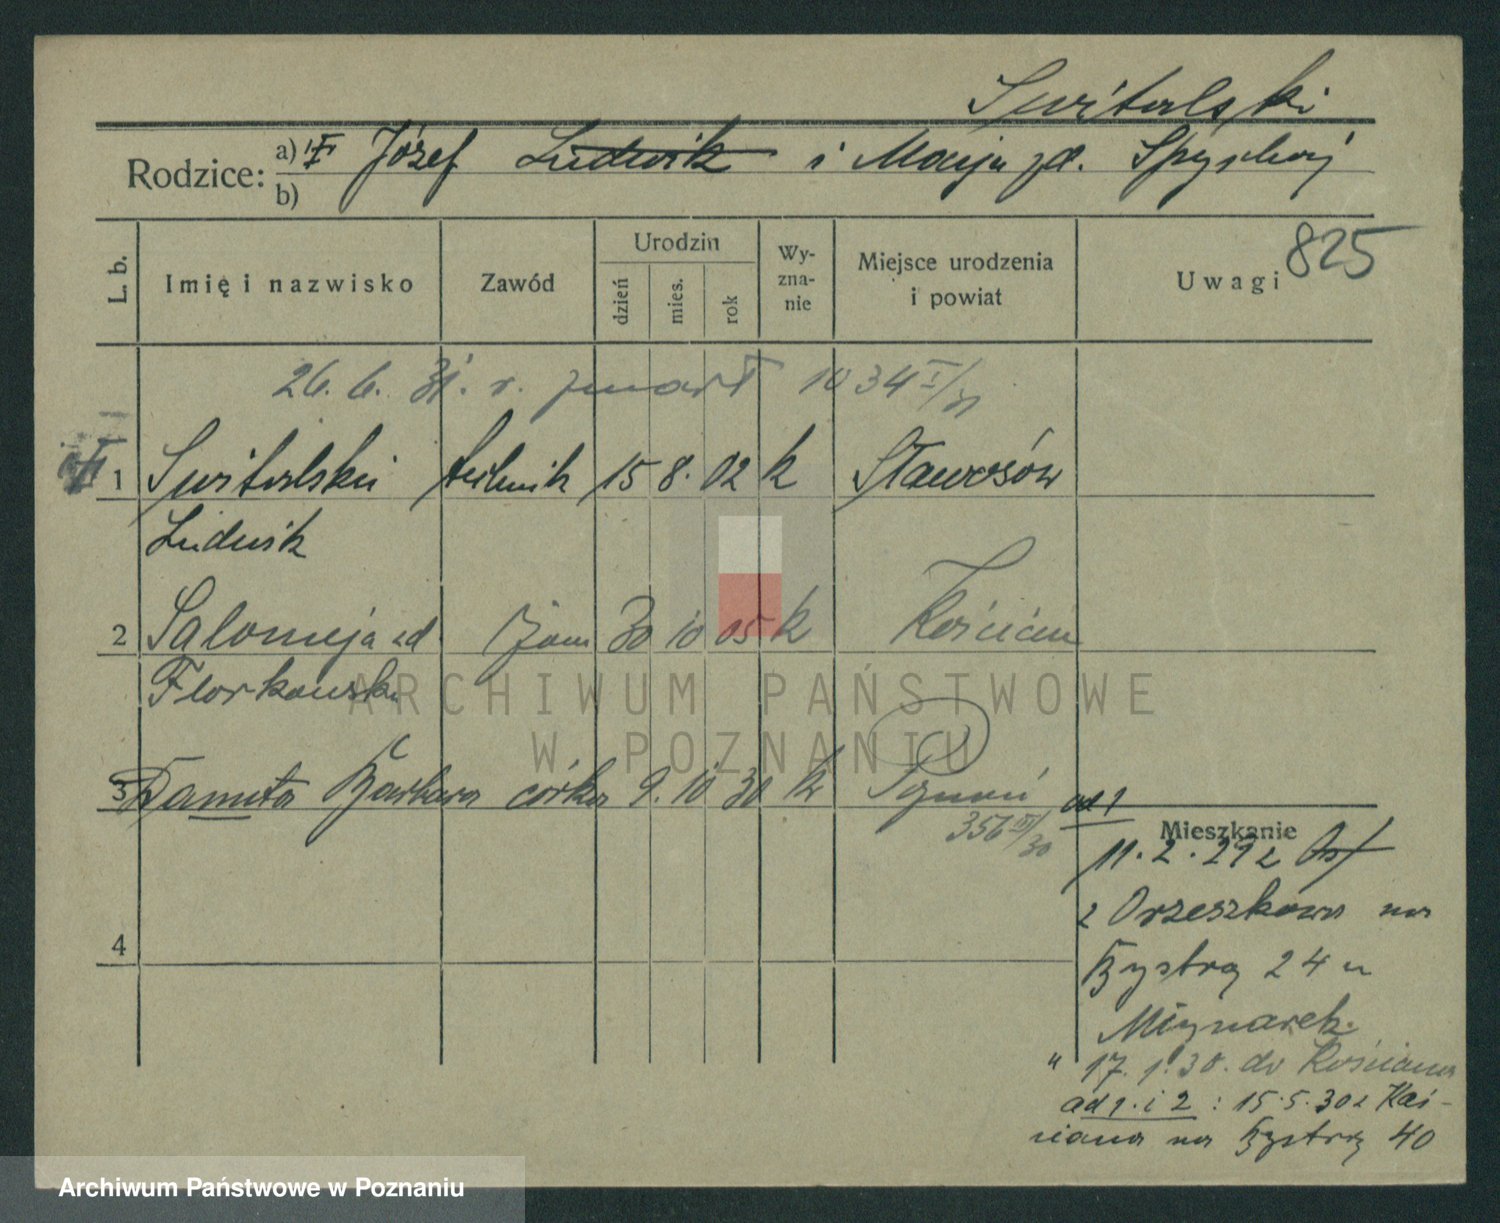 Switalski
Rodzice: a) Józef Ludwik i Maryja zd. Spychaj
b)
825
L. b. Imię i nazwisko Zawód Urodzin dzień mies. rok Wyznanie Miejsce urodzenia i powiat Uwagi
26. 6. 31. r. zmarł 1034 I/31
1 Switalski technik 15 8. 02 k
Ludwik
2 Salomeja zd 30 10 05 k Kościan
Florkowska
3 Danuta Barbara córka 9. 10 30 k Poznań
356 III/30
ad 1
Mieszkanie
11. 2. 29 z
z Orzeszkowa na
Bystrą 24 u
Mlynarek.
" 17. 1. 30. do Kościana
ad 1. i 2 : 15.5.30 z Koś-
ciana na Bystrą 40
4
ARCHIWUM PAŃSTWOWE
W POZNANIU
Archiwum Państwowe w Poznaniu